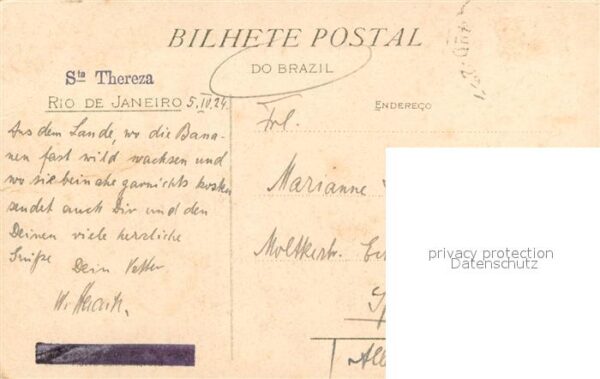 BILHETE POSTAL
DO BRAZIL
Sta Thereza
RIO DE JANEIRO 5.IV.24
ENDEREÇO
Aus dem Lande, wo die Bana-
nen fast wild wachsen und
wo sie beinahe garnichts kosten
sendet auch Dir und den
Deinen viele herzliche
Grüße
Dein Vetter
W.
Frl.
Marianne
Moltkestr.
privacy protection
Datenschutz